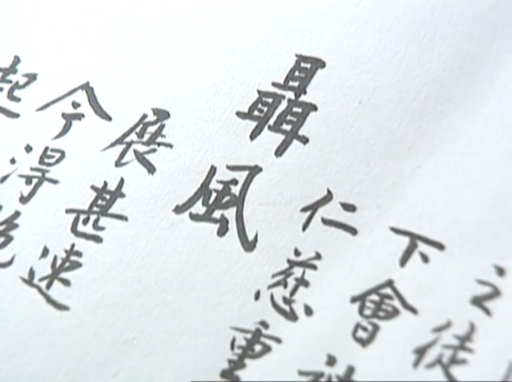 之徒
下會
仁慈重
聶風
展甚速
今得
起